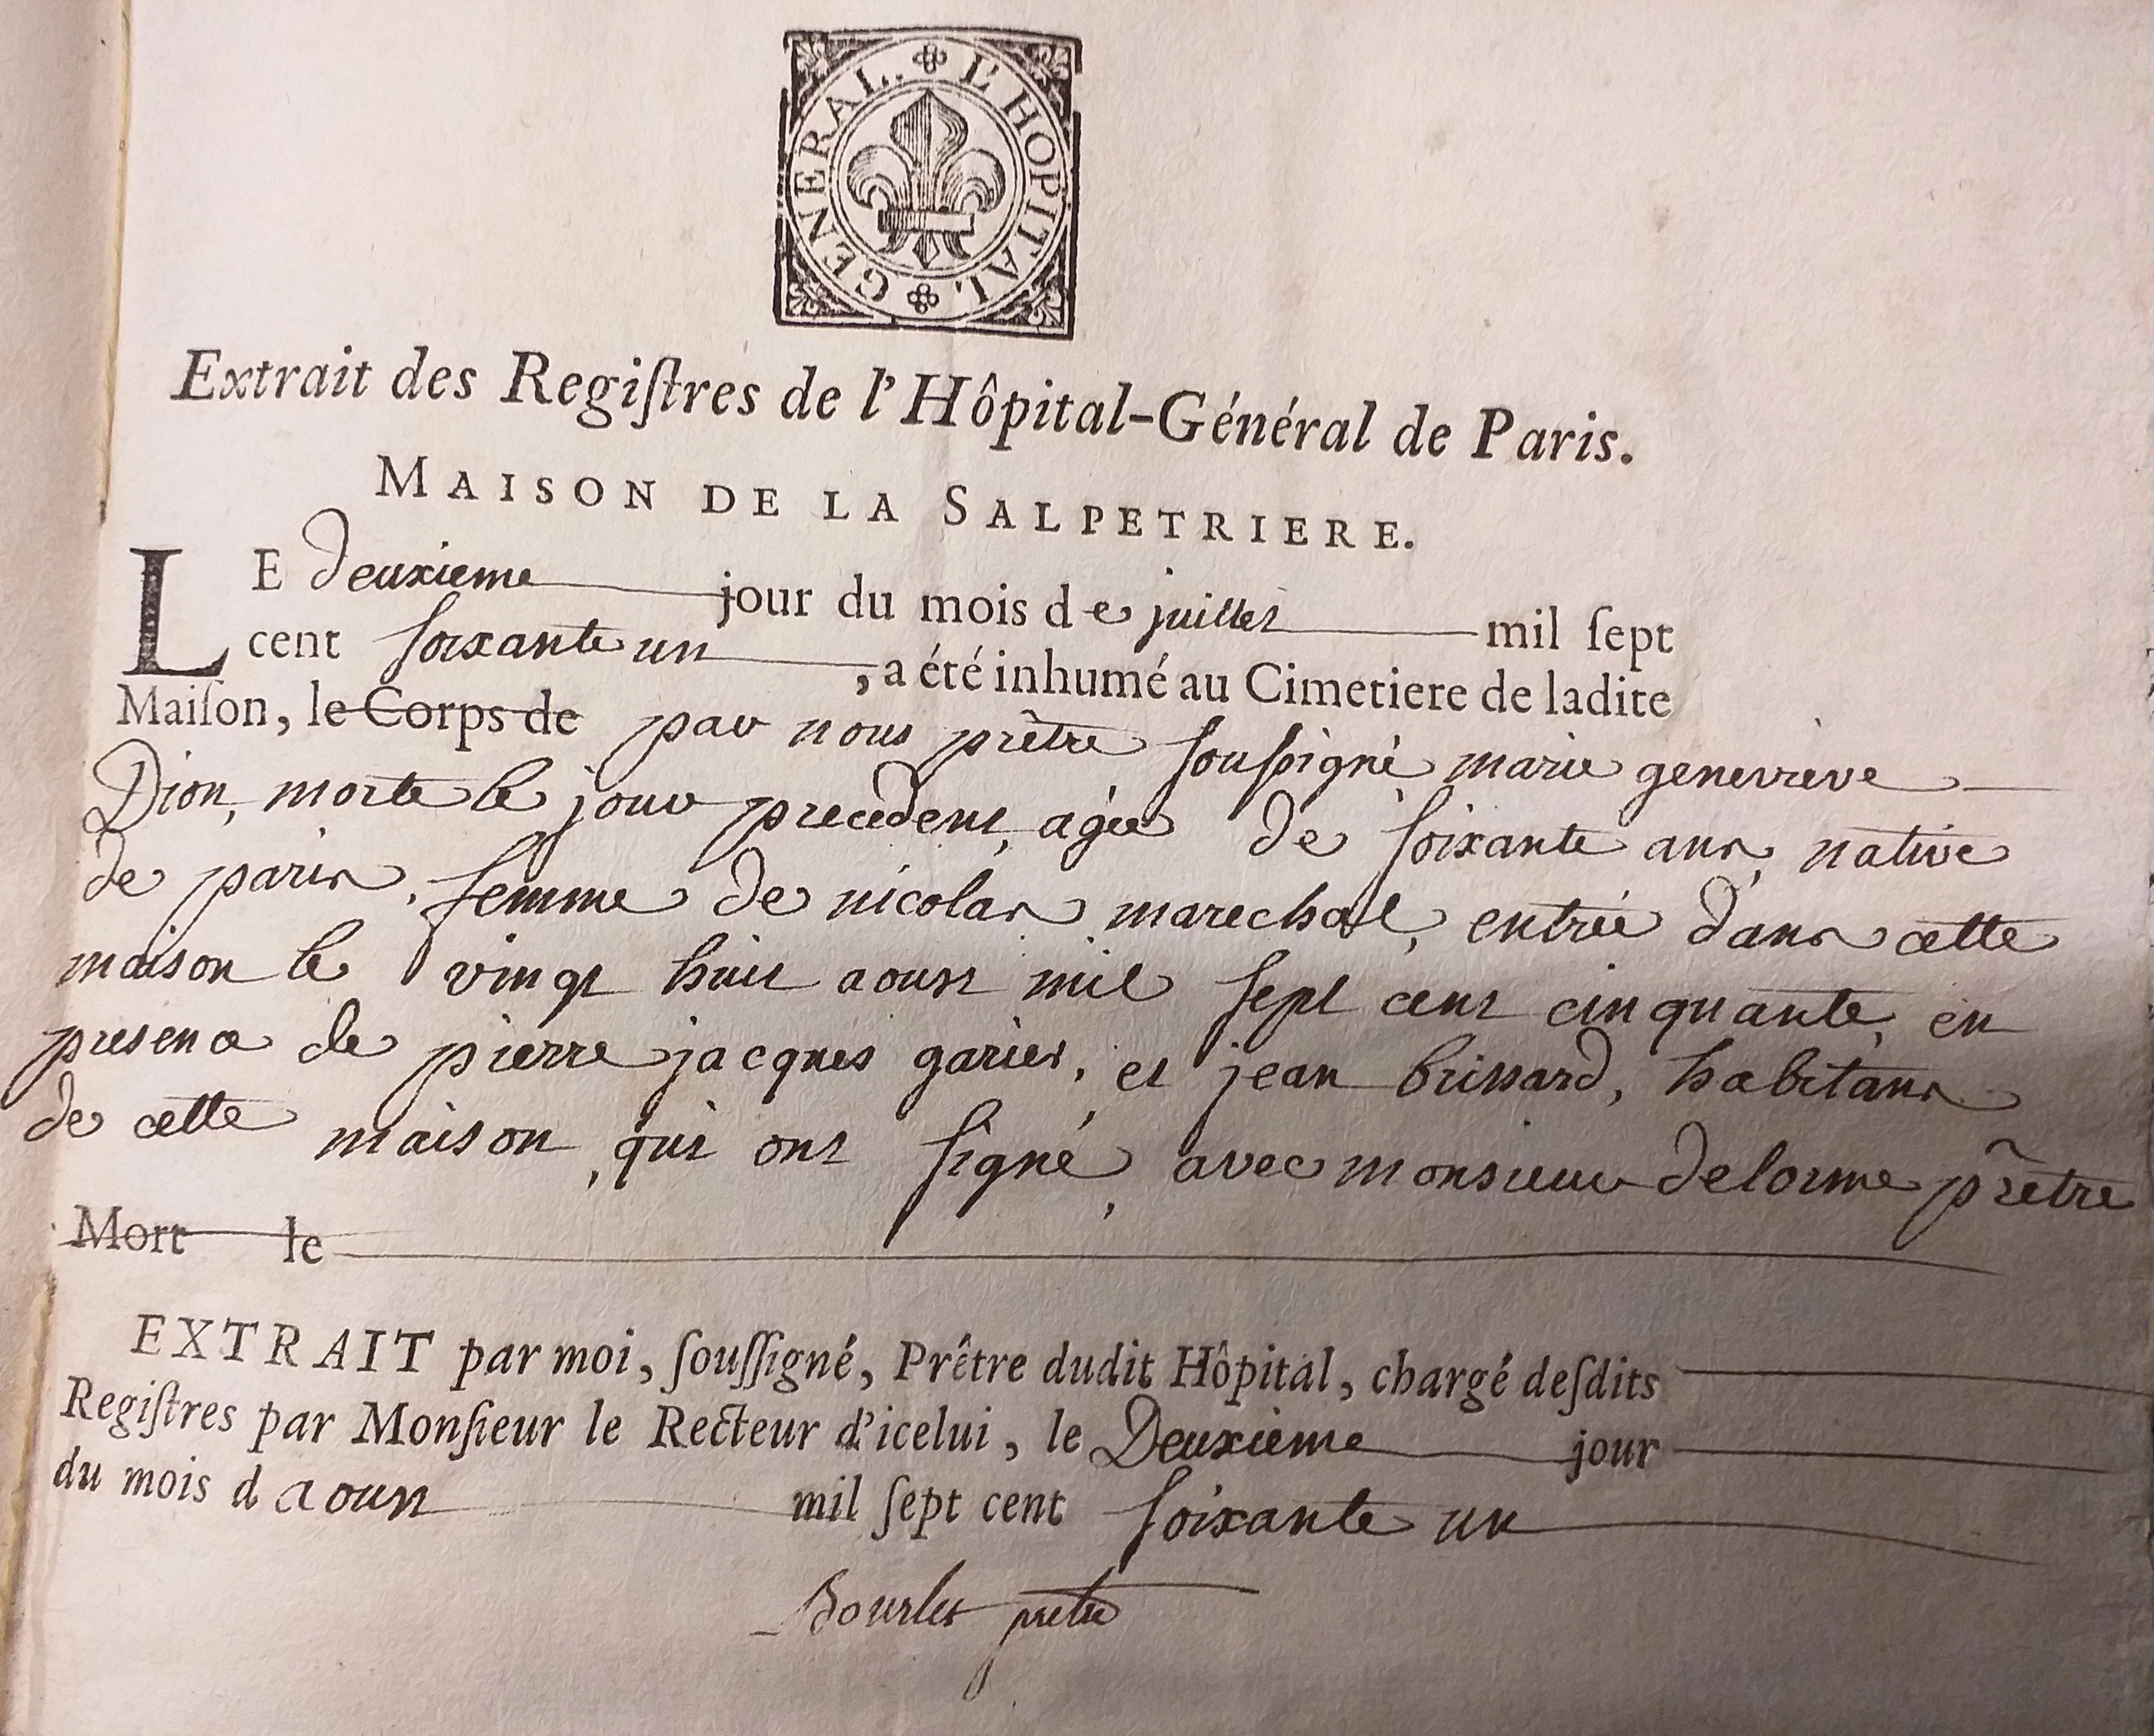 L'HOPITAL GENERAL.
Extrait des Regiſtres de l'Hôpital-Général de Paris.
MAISON DE LA SALPETRIERE.
LE deuxieme jour du mois de juillet mil ſept
cent ſoixante un, a été inhumé au Cimetiere de ladite
Maiſon, le Corps de par nous prêtre ſouſsigné marie genevieve
Dion, morte le jour precedent, agée de ſoixante ans, native
de paris, femme de nicolas marechal, entrée dans cette
maison le vingt huit aoust mil ſept cent cinquante, en
presence de pierre jacques gariet, et jean brissard, habitans
de cette maison, qui ont ſigné, avec monsieur delorme prêtre
Mort le
EXTRAIT par moi, ſouſſigné, Prêtre dudit Hôpital, chargé deſdits
Regiſtres par Monſieur le Recteur d'icelui, le Deuxieme jour
du mois d aoust mil ſept cent ſoixante un
Bourlet prêtre